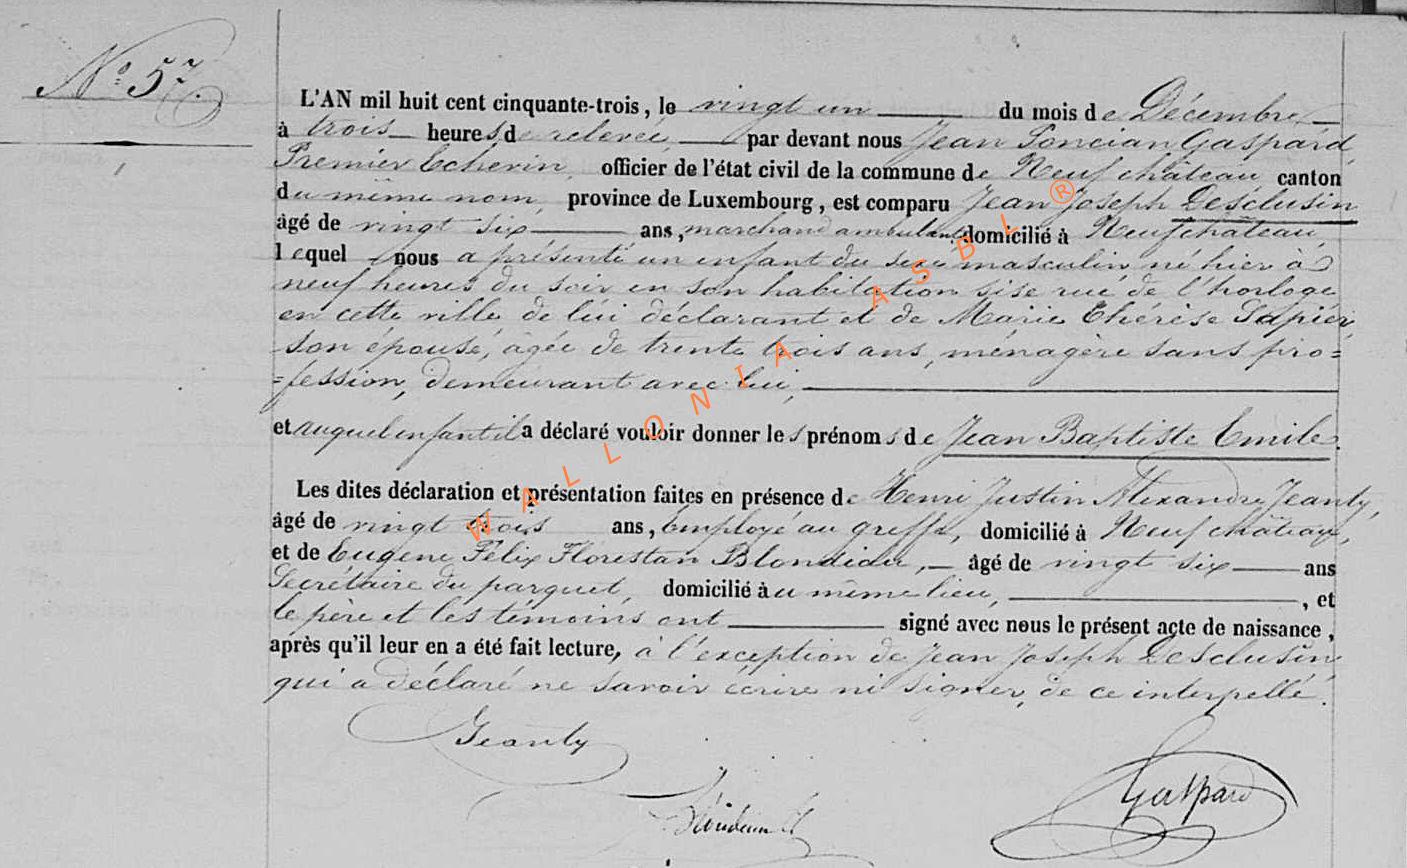 N.° 57.
L'AN mil huit cent cinquante-trois, le vingt un du mois de Décembre
à trois heures de relevée, par devant nous Jean Poncian Gaspard,
Premier Echevin, officier de l'état civil de la commune de Neufchâteau canton
du même nom, province de Luxembourg, est comparu Jean Joseph Desclusin
âgé de vingt six ans, marchand ambulant domicilié à Neufchâteau,
lequel nous a présenté un enfant du sexe masculin, né hier à
neuf heures du soir en son habitation sise rue de l'horloge
en cette ville de lui déclarant et de Marie Therèse Sapier
son épouse, agée de trente trois ans, ménagère sans pro=
=fession, demeurant avec lui,
et auquel enfant il a déclaré vouloir donner les prénoms de Jean Baptiste Emile.
Les dites déclaration et présentation faites en présence de Henri Justin Alexandre Jeanty,
âgé de vingt trois ans, Employé au greffe, domicilié à Neufchâteau,
et de Eugène Félix Florestan Blondiau, âgé de vingt six ans
Secrétaire du parquet, domicilié au même lieu, , et
le père et les témoins ont signé avec nous le présent acte de naissance,
après qu'il leur en a été fait lecture, à l'exception de Jean Joseph Desclusin,
qui a déclaré ne savoir écrire ni signer, de ce interpellé.
Jeanty
Gaspard
WALLONIA ASBL ®